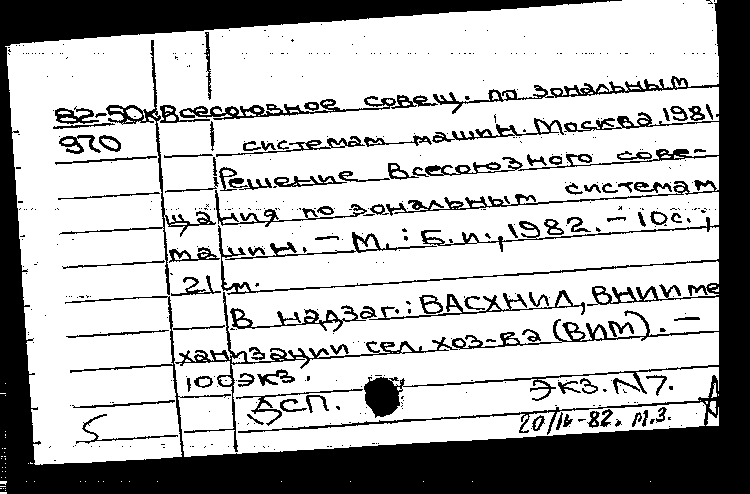 82-50к Всесоюзное совещ. по зональным
970 системам машин. Москва. 1981.
Решение Всесоюзного сове-
щания по зональным системам
машин. - М.: Б.и., 1982. - 10с.;
21см.
В надзаг.: ВАСХНИЛ, ВНИИ ме
ханизации сел. хоз-ва (ВИМ). -
100экз.
ДСП. Экз. N7.
5 20/IV-82. М.З.